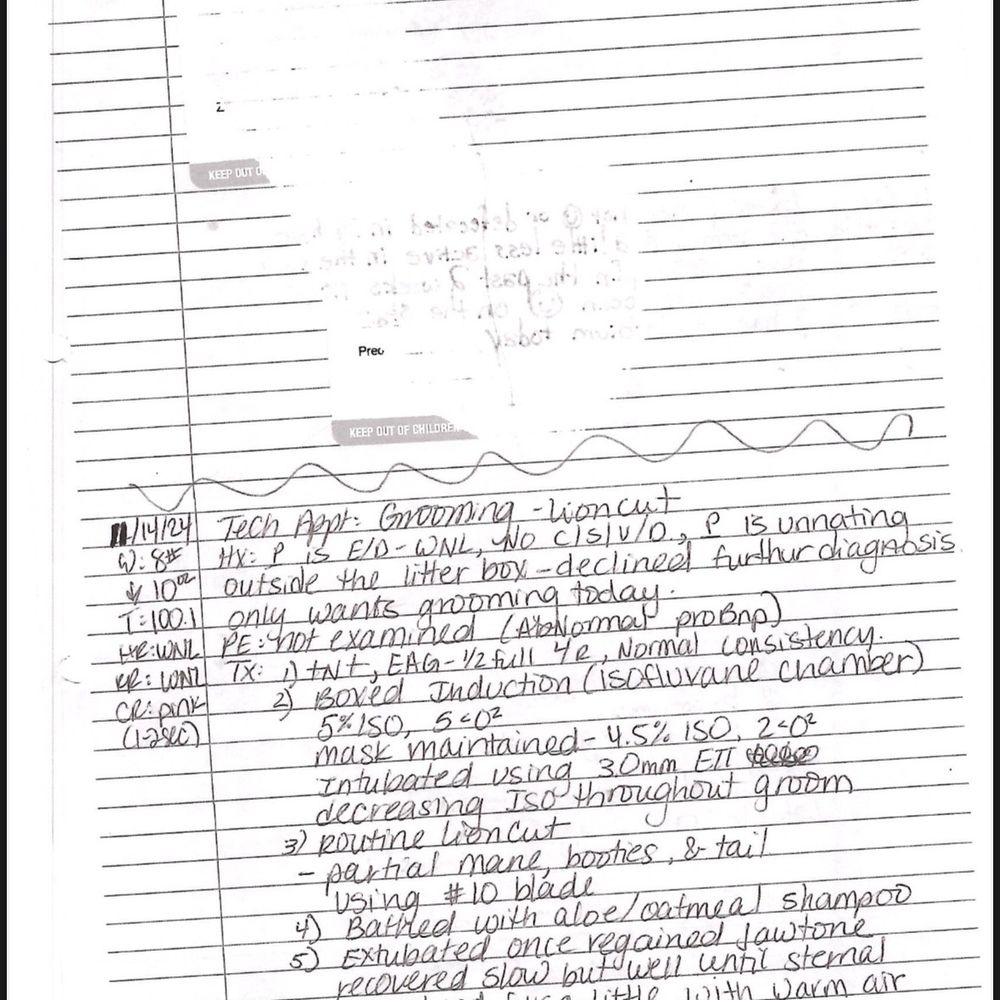 KEEP OUT O
Prec
KEEP OUT OF CHILDRE
11/14/24 Tech Appt: Grooming - Lioncut
W: 8# Hx: P is E/D - WNL, No C/S/V/D, P is urinating
↓ 10oz outside the litter box - declined furthur diagnosis.
T: 100.1 only wants grooming today.
HR: WNL PE: not examined (Abnormal proBnp)
RR: WNL TX: 1) tNt, EAG - 1/2 full ye, Normal consistency.
CR: pink 2) Boxed Induction (isofluvane chamber)
(1-2sec) 5% ISO, 5 < O2
mask maintained - 4.5% ISO, 2 < O2
Intubated using 3.0mm ETT
decreasing ISO throughout groom
3) routine Lioncut
- partial mane, booties, & tail
using #10 blade
4) Bathed with aloe/oatmeal shampoo
5) Extubated once regained Jawtone
recovered slow but well until sternal
little with warm air